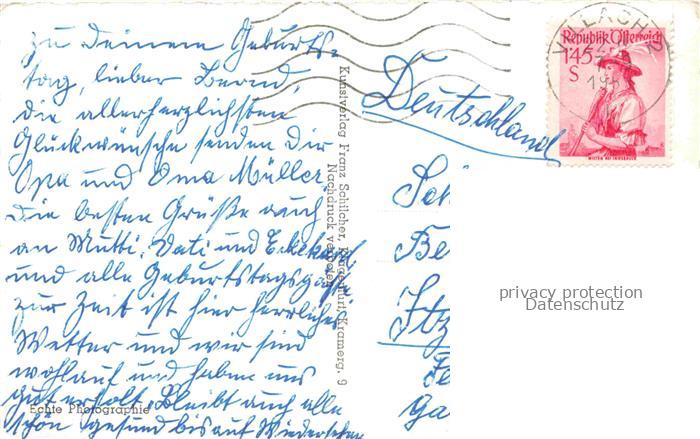 zu Deinem Geburts-
tag, lieber Bernd,
die allerherzlichsten
Glückwünsche senden Dir
Opa und Oma Müller.
Die besten Grüße auch
an Mutti, Vati und
und alle Geburtstagsgäste
zur Zeit ist hier herrliches
Wetter und wir sind
wohlauf und haben uns
gut erholt. Bleibt auch alle
schön gesund bis auf Wiedersehen
Echte Photographie
Kunstverlag Franz Schilcher, Klagenfurt, Kramerg. 9
Nachdruck verboten
Deutschland
Republik Österreich
1.45
S
WILTEN BEI INNSBRUCK
VILLACH 2
Sch
Be
Itz
Fe
Ga
privacy protection
Datenschutz